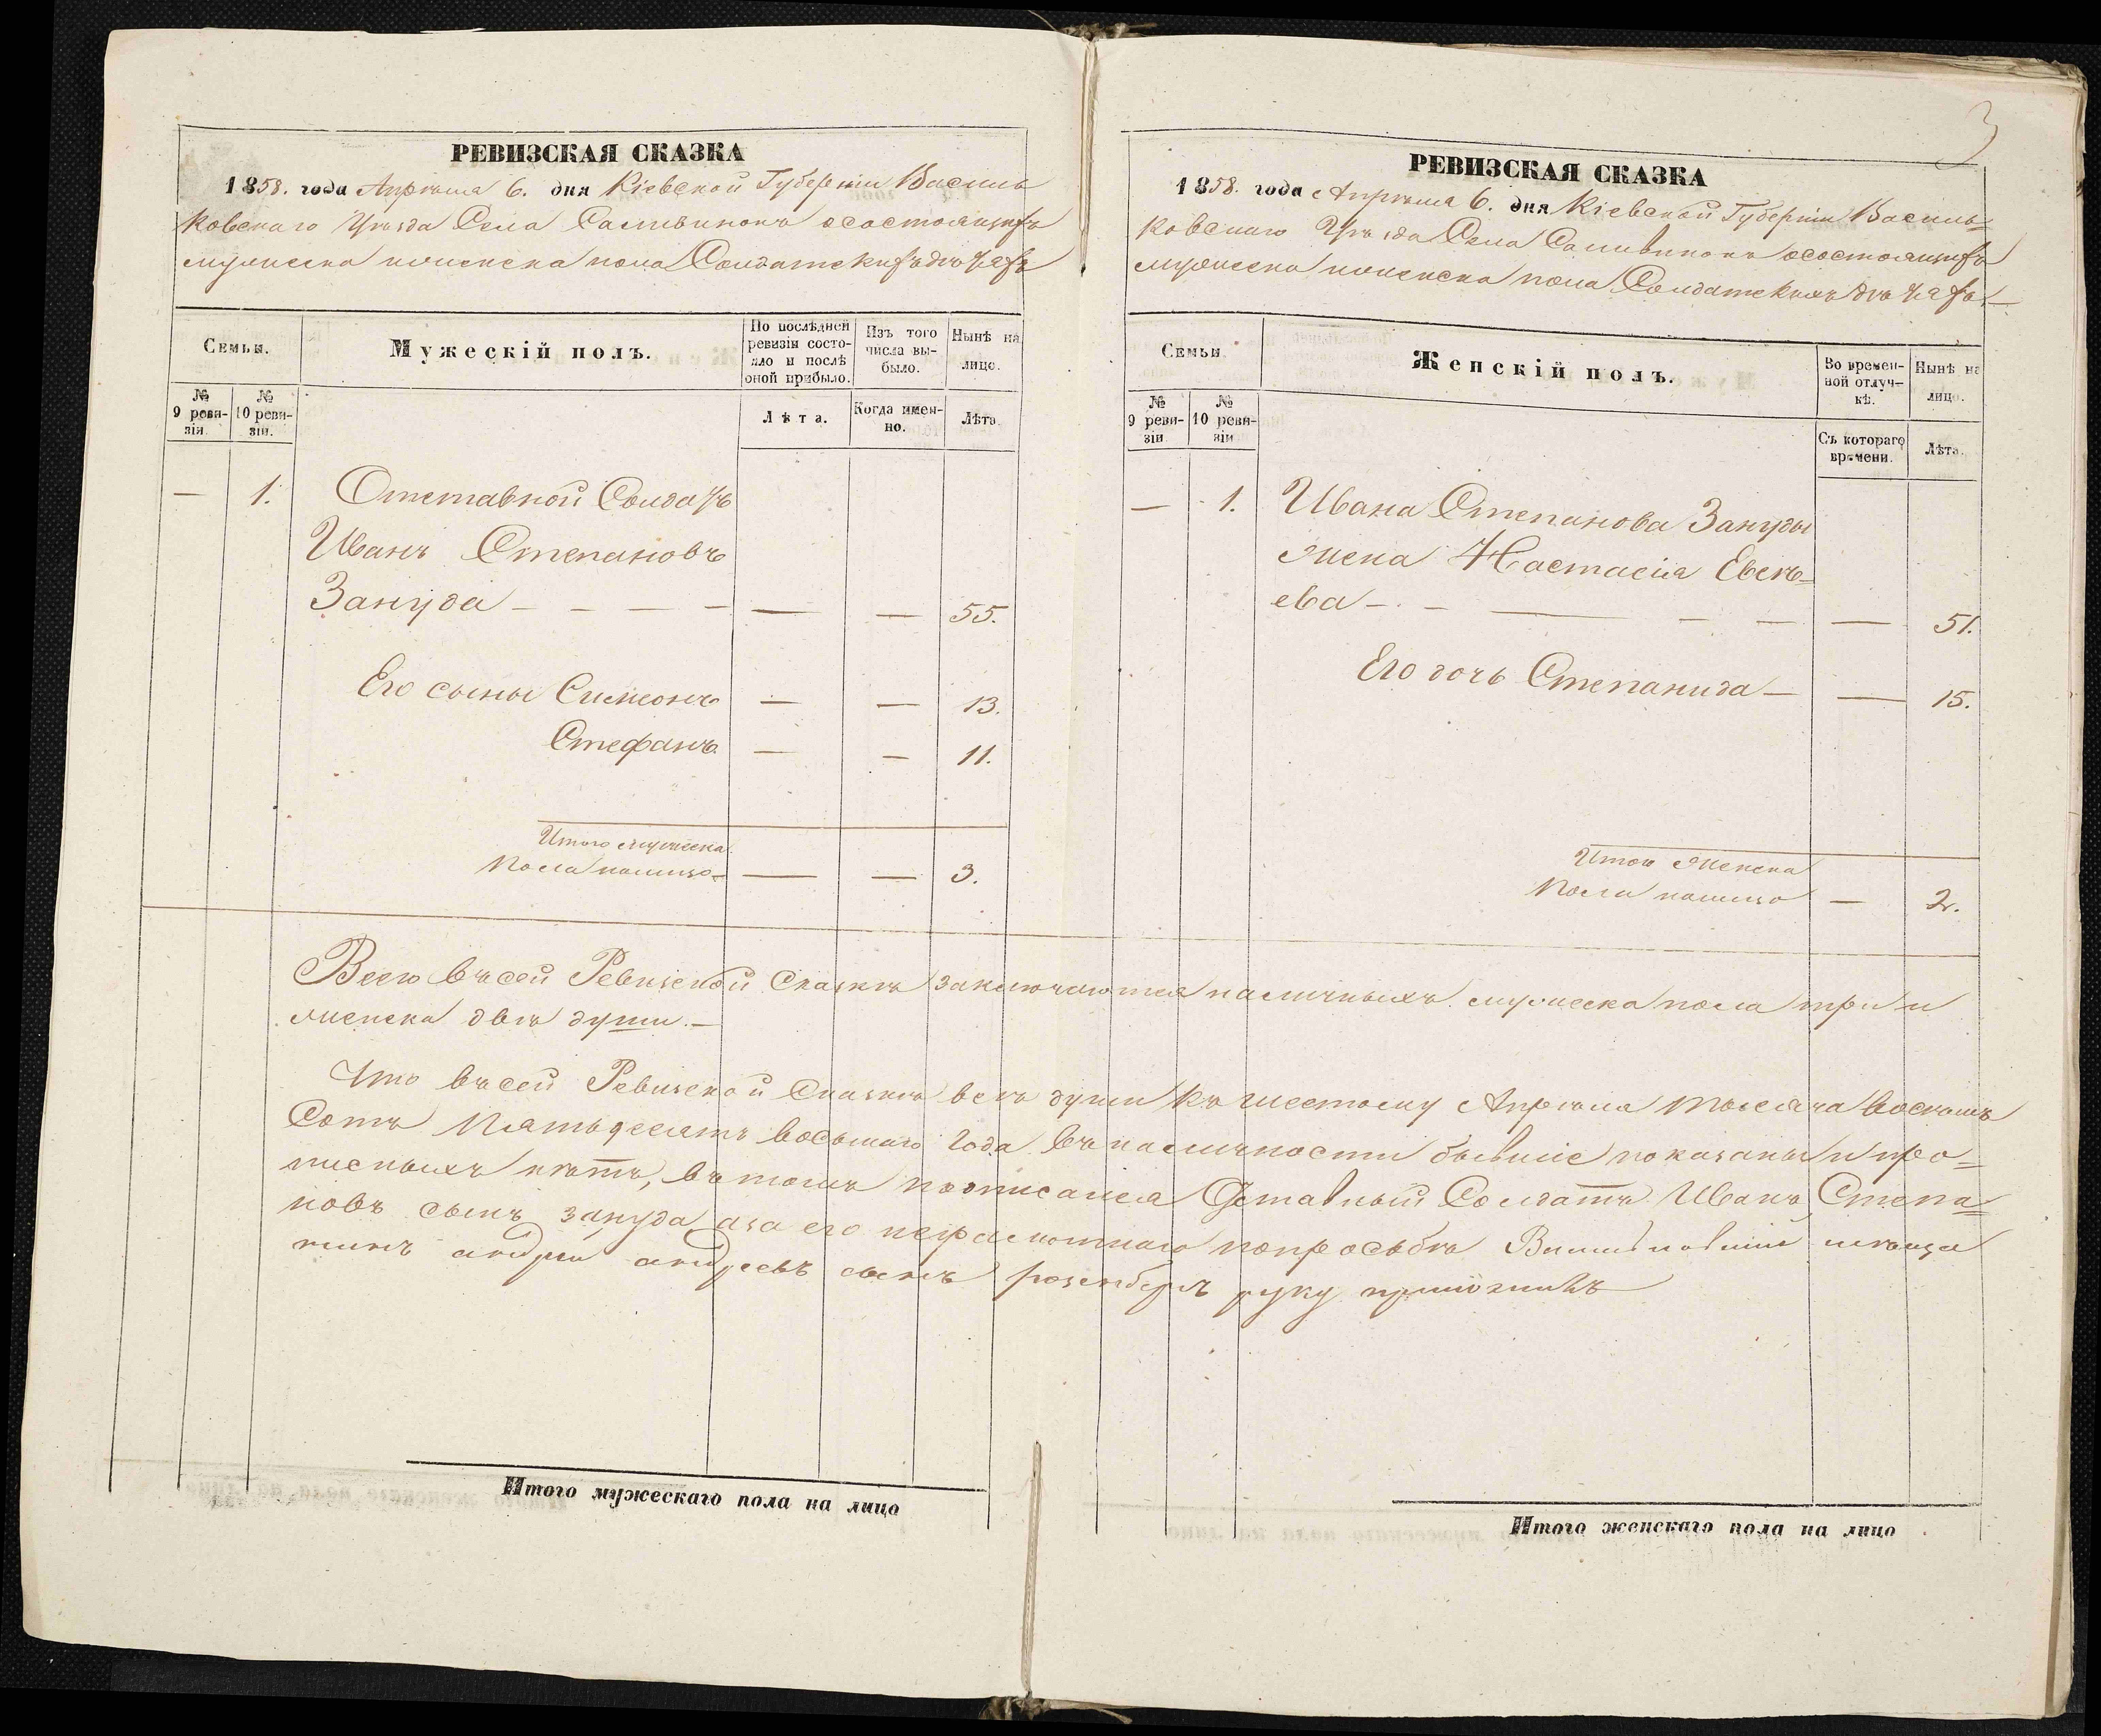 РЕВИЗСКАЯ СКАЗКА
1858. года Апрѣля 6. дня Кіевской Губерніи Василь
ковскаго Уѣзда Села Саливинокъ осостоящихъ
мужеска иженска пола Солдатскихъ дѣтяхъ
Семьи.
Мужескій полъ.
По послѣдней ревизіи состояло и послѣ оной прибыло.
Изъ того числа выбыло.
Нынѣ на лицо.
№ 9 ревизія.
№ 10 ревизіи.
Лѣта.
Когда именно.
Лѣта
— 1. Отставной Солдатъ
Иванъ Степановъ
Зануда — — — — — — 55.
Его сыны Симеонъ — — 13.
Стефанъ — — 11.
Итого мужеска
Пола налицо — — 3.
3
РЕВИЗСКАЯ СКАЗКА
1858. года Апрѣля 6. дня Кіевской Губерніи Василь=
ковскаго Уѣзда Села Саливинокъ осостоящихъ
мужеска иженска пола Солдатскихъ дѣтяхъ —
Семьи
Женскій полъ.
Во временной отлучкѣ.
Нынѣ на лицо.
№ 9 ревизіи
№ 10 ревизіи
Съ котораго времени.
Лѣта.
— 1. Ивана Степанова Зануды
жена Настасія Евсѣ=
ева — — — — — — 51.
Его дочь Степанида — — 15.
Итого Женска
Пола налицо — 2.
Всего въсей Ревизской Сказкѣ заключаются наличныхъ мужеска пола три и
женска двѣ души. —
Что въсей Ревизской Сказкѣ всѣ души къ шестому Апрѣля тысяча восемь
Сотъ Пятьдесятъ восьмаго года въ наличности бывшіе показаны и про=
писныхъ нѣтъ, въ томъ подписался Отставный Солдатъ Иванъ Степа=
новъ сынъ зануда аза его неграмотнаго попросьбѣ мѣща
нинъ андрей андреевъ сынъ розенбергъ руку приложилъ
Итого мужескаго пола на лицо
Итого женскаго пола на лицо